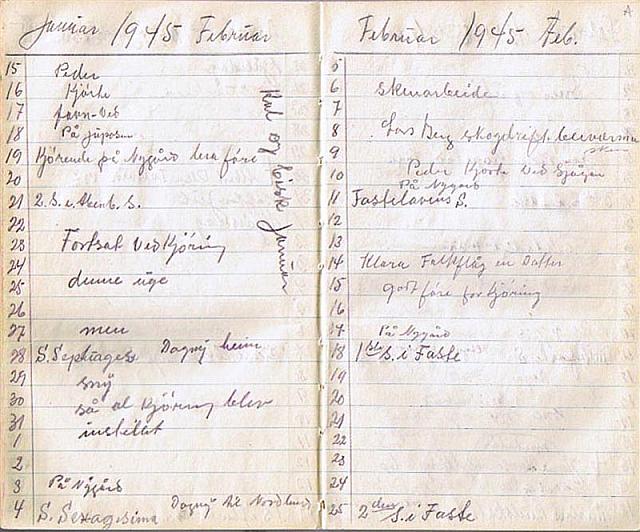 Januar 1945 Februar
15 Peder
16 Kjørte
17 favn-Ved
18 På
19 Kjørende på Nygård bra føre
20
21 2. S. e.
22
23 Fortsat Vedkjøring
24
25 denne uge
26
27 men
28 S. Septuages Dagny heim
29 sny
30 så al Kjøring blev
31 instellet
1
2
3 På Nygård
4 S. Sexagesima Dagny til Nordlund
Kul og frisk Januar
Februar 1945 Feb.
5
6 skauarbeide
7
8 Lars Berg skogdrift
9
10 Peder Kjørte Ved
På Nygård
11 Fastelavns S.
12
13
14 Klara Falkflåg en Datter
15 godt føre for Kjøring
16
17 På Nygård
18 1ste S. i Faste
19
20
21
22
23
24
25 2den S. i Faste